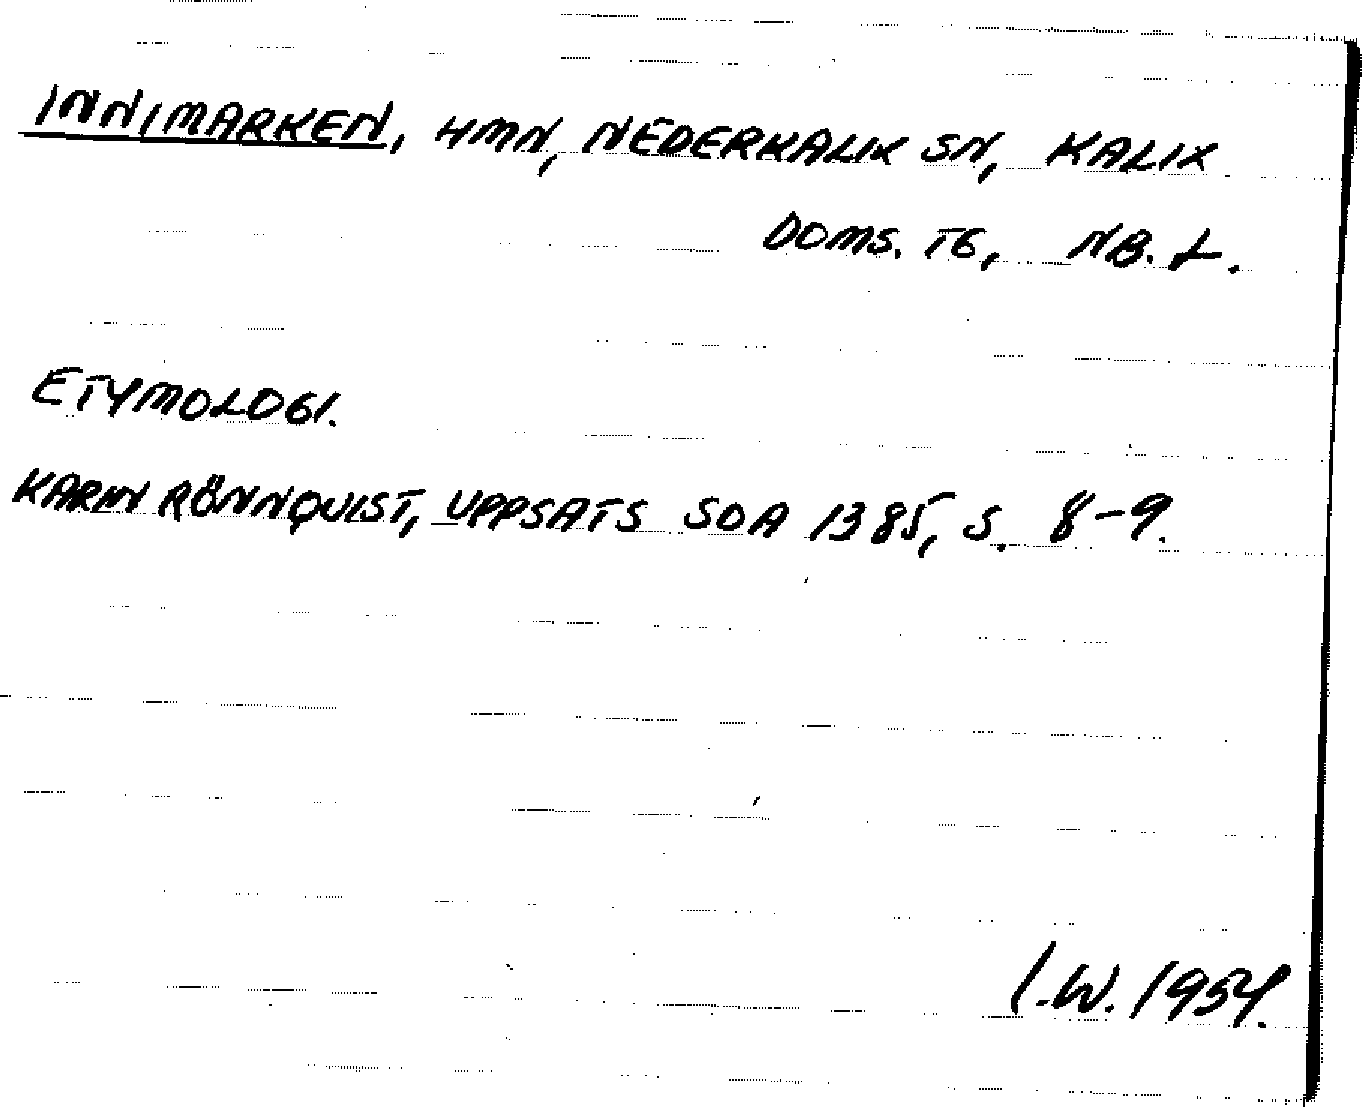 INNIMARKEN, HMN, NEDERKALIX SN, KALIX
DOMS. TG, NB. L.
ETYMOLOGI.
KARIN RÖNNQUIST, UPPSATS SOA 1385, S. 8-9.
I.W. 1954.